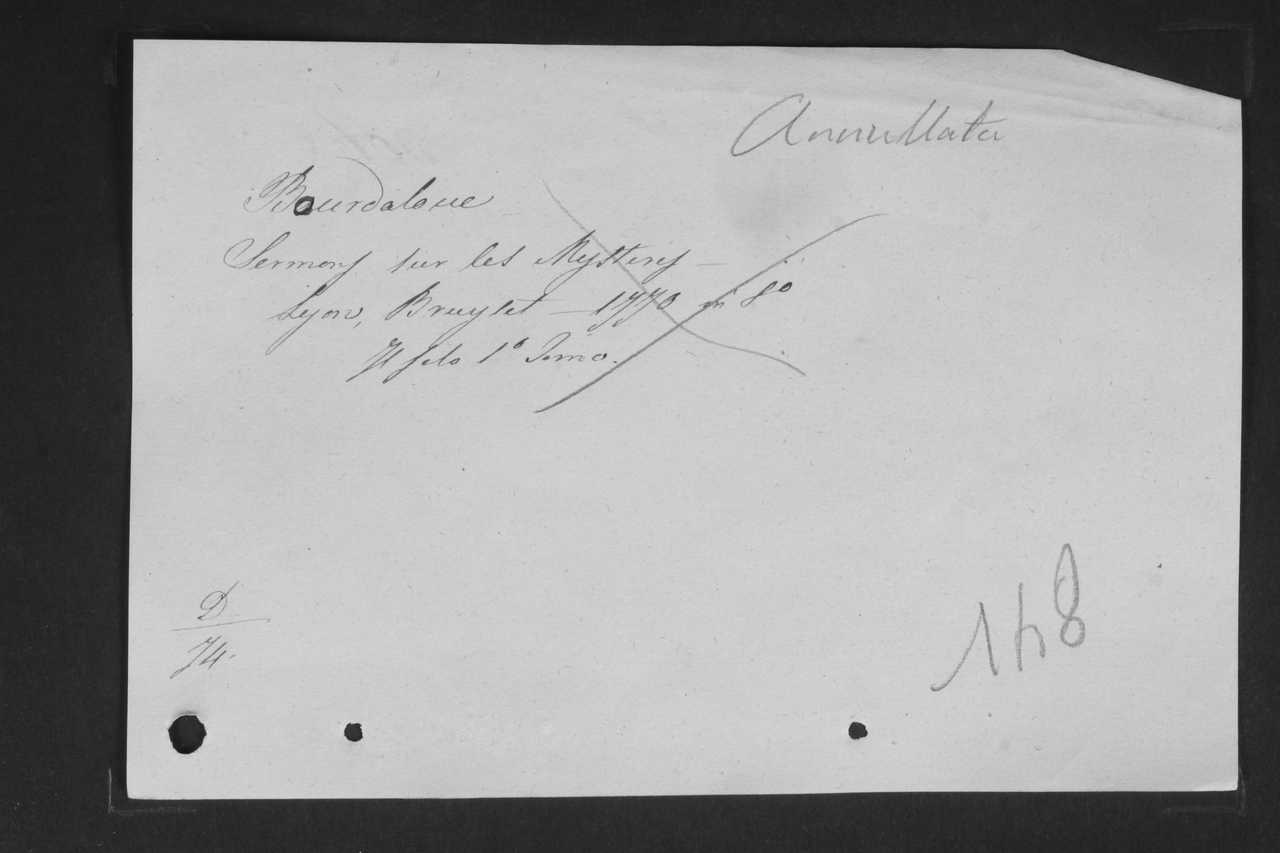 Annullata
Bourdaloue
Sermons sur les Mystères —
Lyon, Bruyset — 1770 in 8º
Il solo 1º Tomo.
D
74.
148